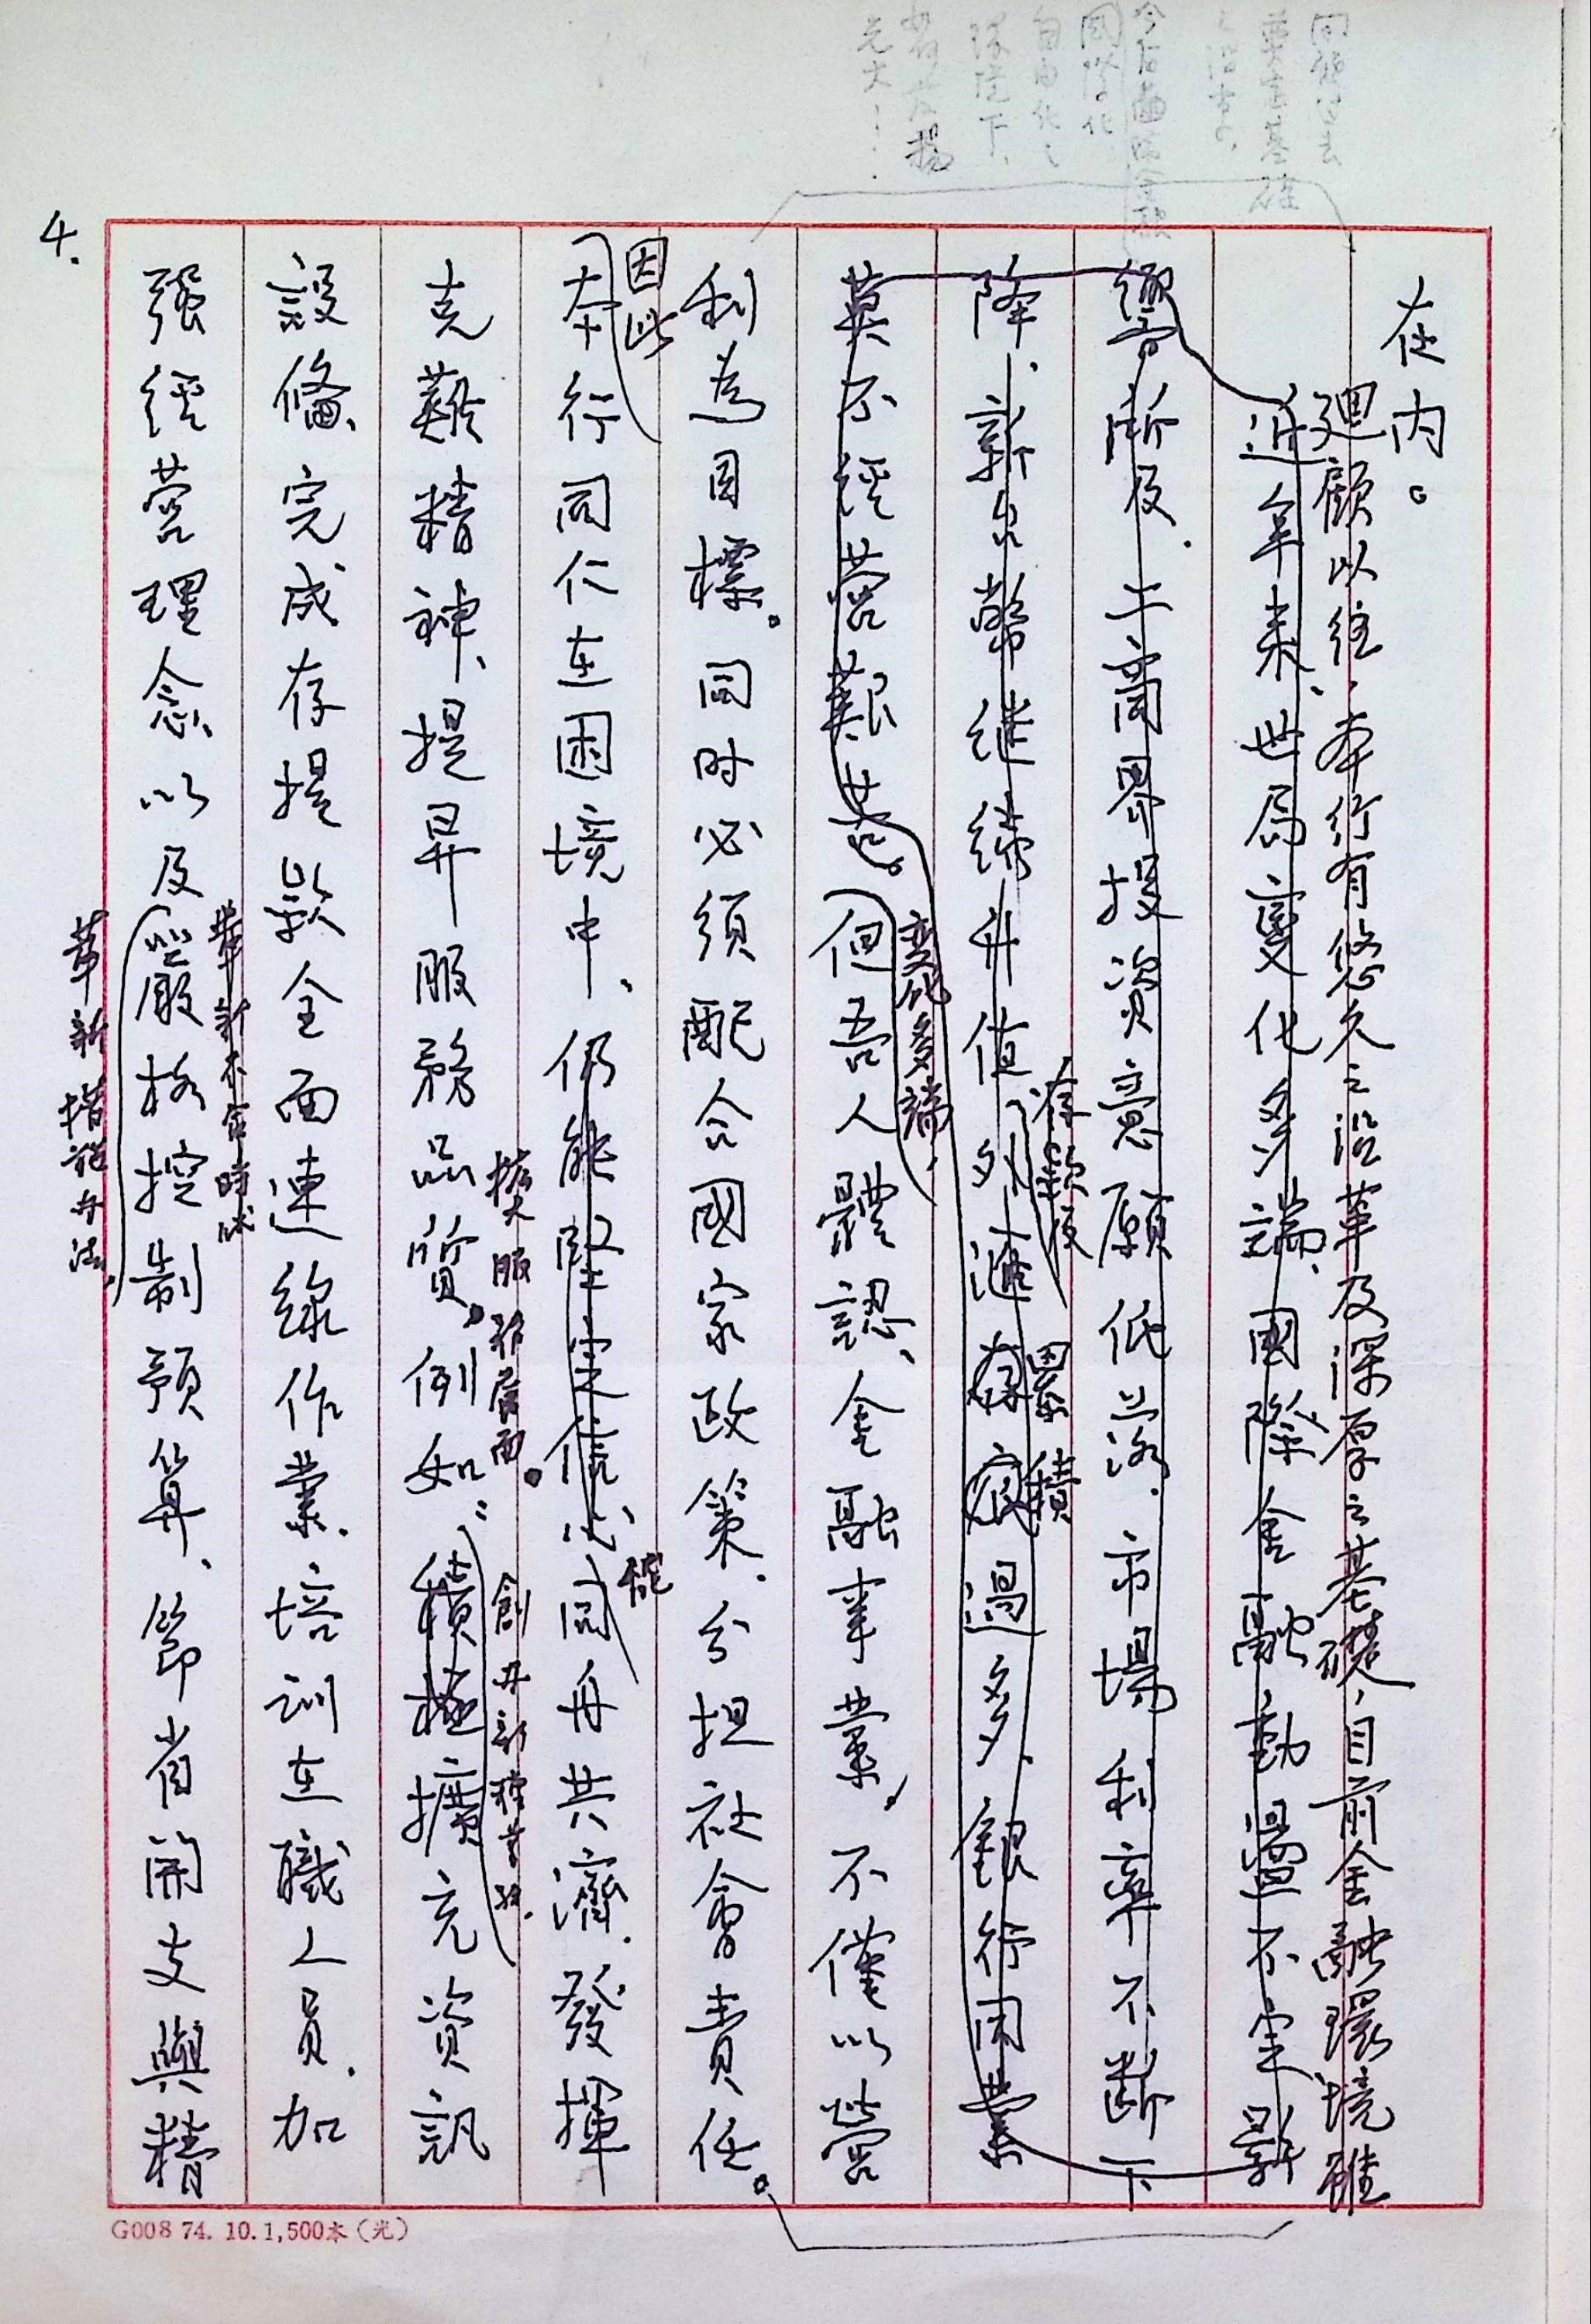 在內。
廻顧以往，本行有悠久之沿革及深厚之基礎，目前金融環境雖
近年來、世局變化多端、國際金融動盪不定影
響所及、工商界投資意願低落、市場利率不斷下
降、新台幣繼續升值、外滙存底過多、銀行同業
存款
累積
莫不經營艱苦。但吾人體認、金融事業、不僅以營
變化多端，
利為目標。同時必須配合國家政策、分担社會責任。
因此
本行同仁在困境中、仍能堅定信心、同舟共濟、發揮
克難精神、提昇服務品質。例如：積極擴充資訊
擴大服務層面。
創
設備、完成存提款全面連線作業、培訓在職人員、加
強經營理念、以及嚴格控制預算、節省開支與精
革新不合時
革新措施办法
4.
同
國際化
自由化、
下、
光大！
G008 74. 10. 1,500本（光）